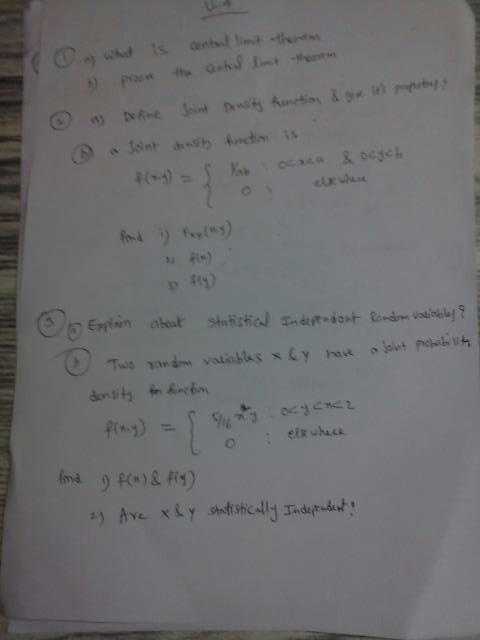 U-4
① a) what is central limit theorem
b) prove the central limit theorem
② a) Define Joint Density function & give it's properties?
ⓑ a Joint density function is
f(x,y) = { 1/ab : 0<x<a & 0<y<b
0 ; elsewhere
find 1) Fxy(x,y)
2) f(x)
3) f(y)
③ ⓐ Explain about statistical Independent Random variables?
ⓑ Two random variables x & y have a joint probability
density fn function
f(x,y) = { 5/16 x²y : 0<y<x<2
0 : elsewhere
find 1) f(x) & f(y)
2) Are x & y statistically Independent?